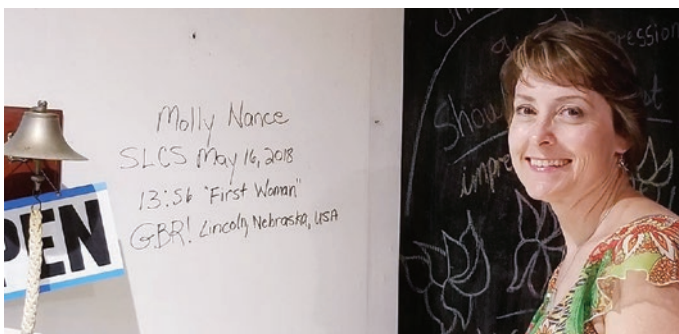 Molly Nance
SLCS May 16, 2018
13:56 "First Woman"
GBR! Lincoln, Nebraska, USA
PEN
Show